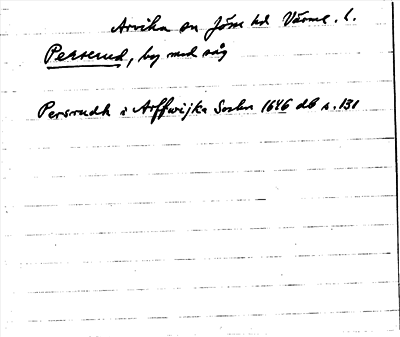 Arvika sn Jösse hd Värml. l.
Perserud, by med såg
Persrudh i Arffwijka Sockn 1646 db s. 131